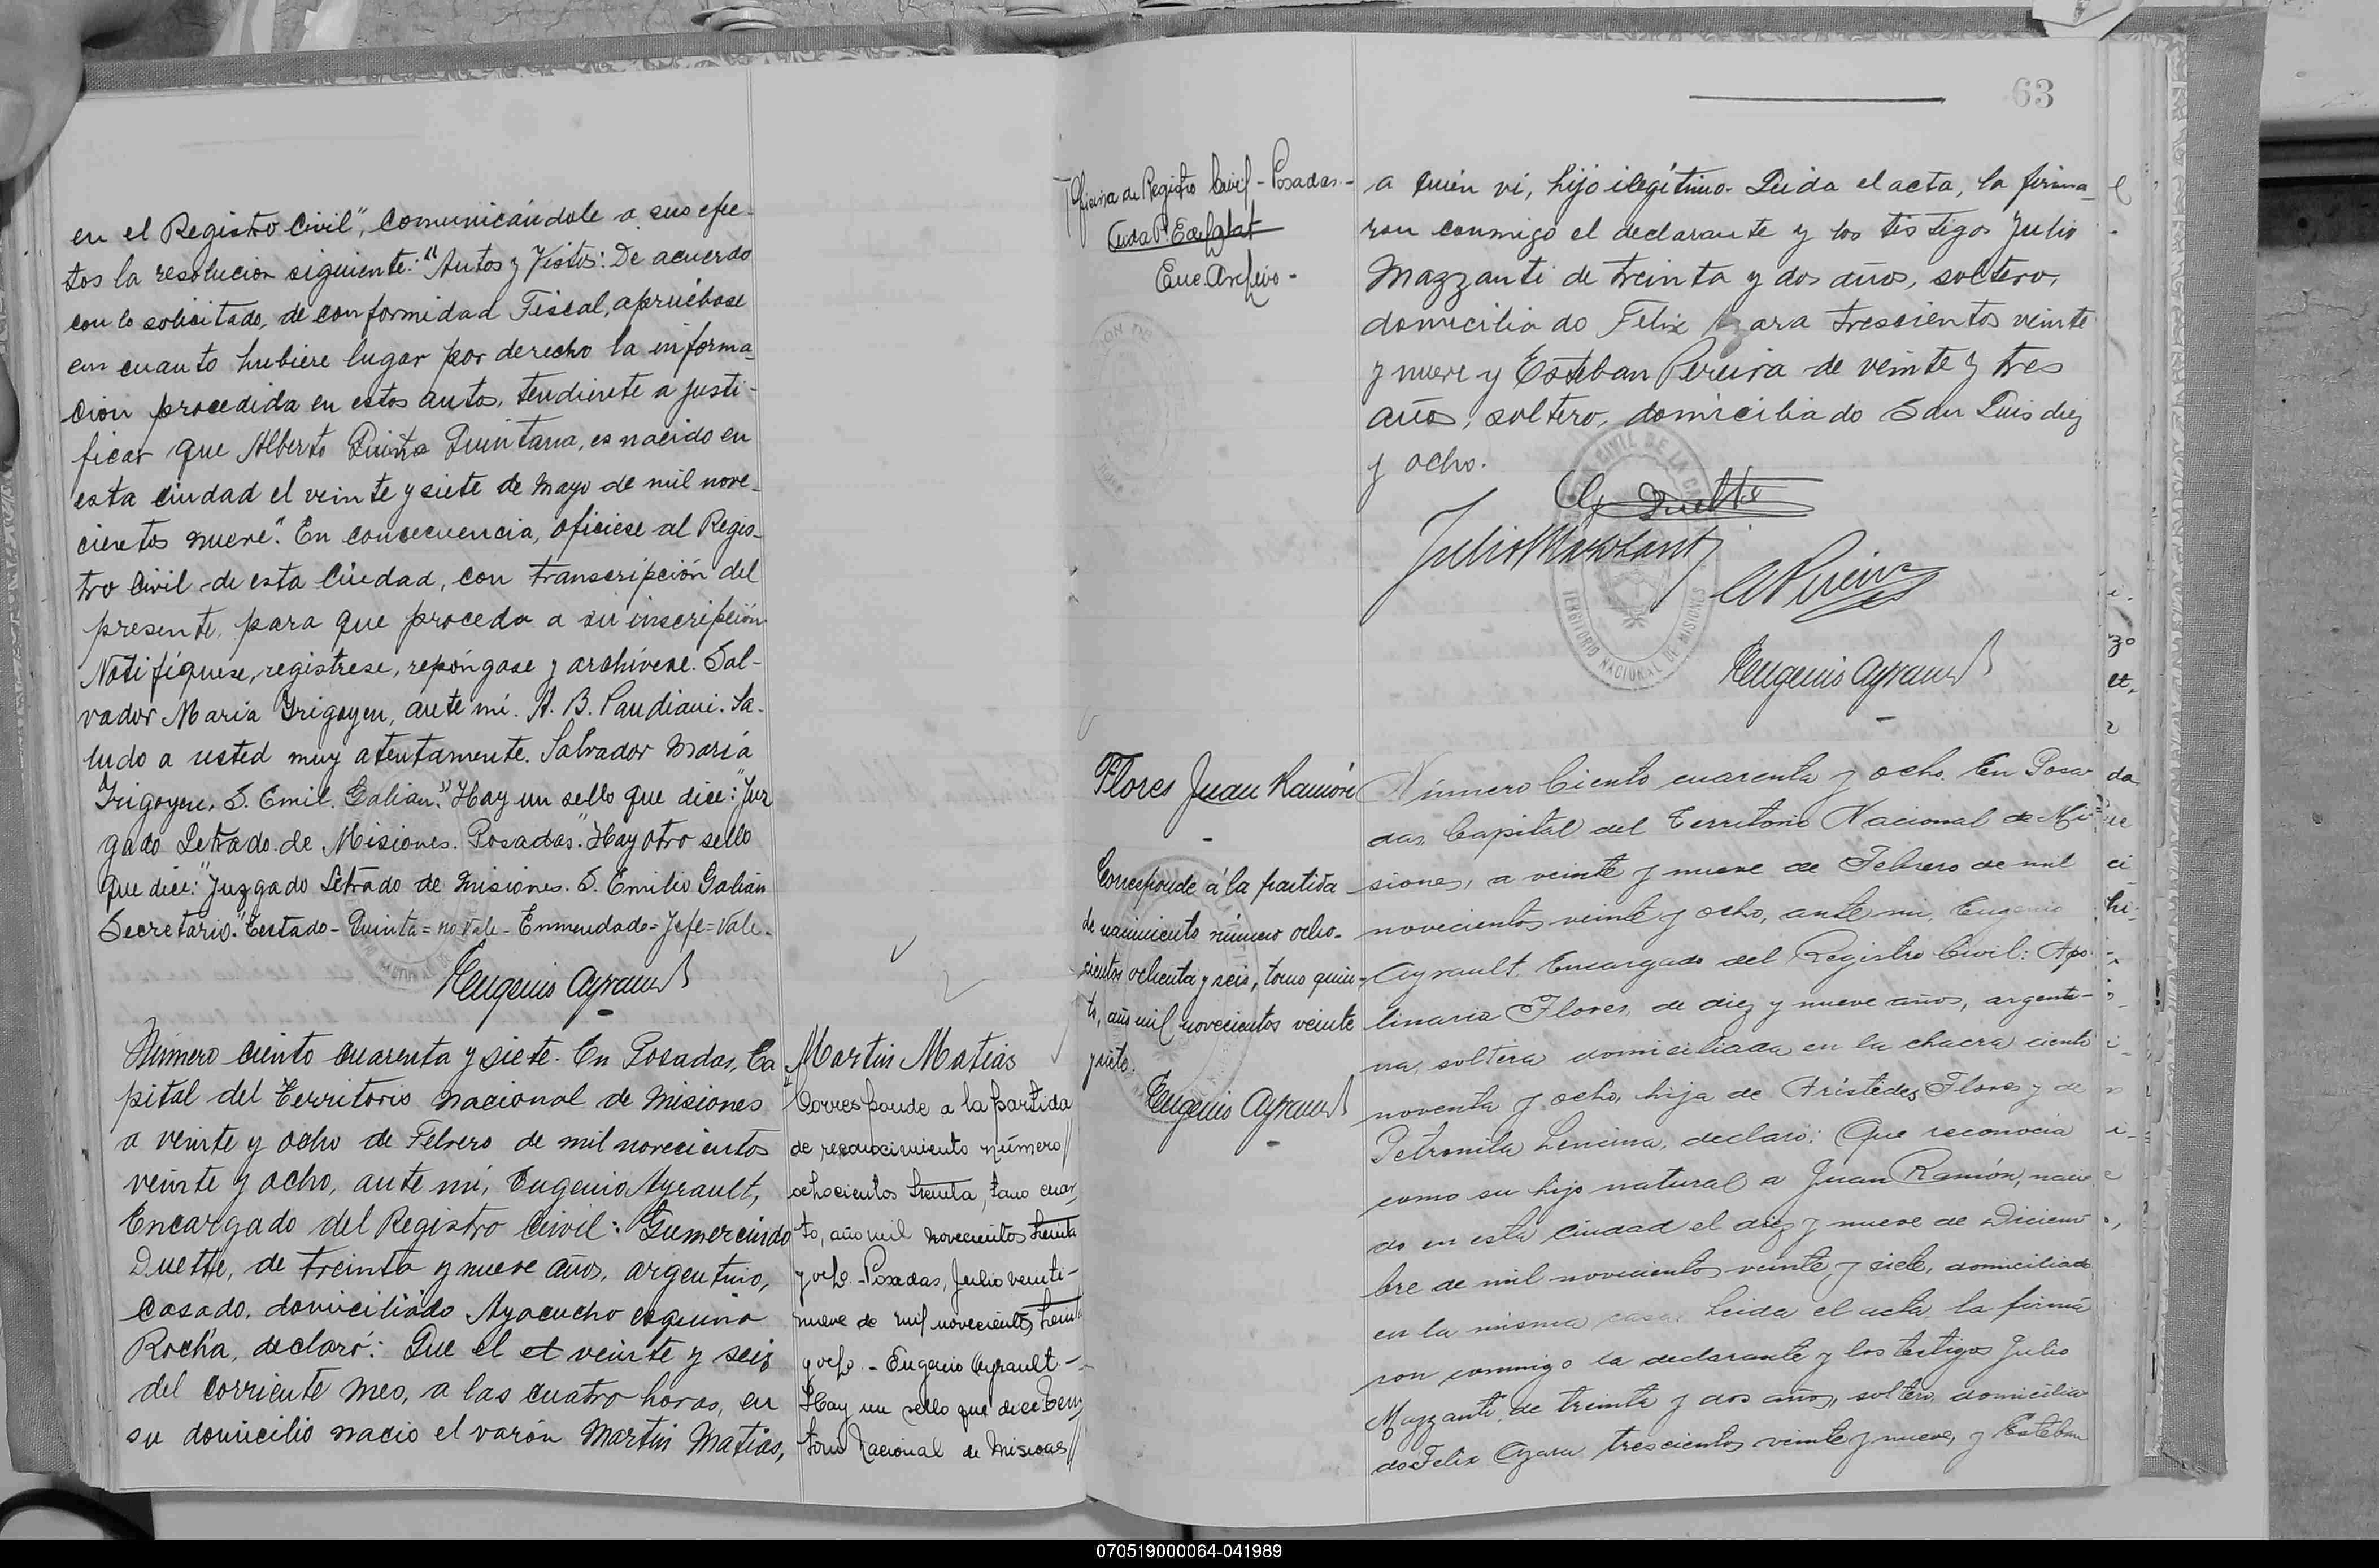 en el Registro Civil", comunicándole a sus efec-
tos la resolución siguiente: "Autos y Vistos: De acuerdo
con lo solicitado, de conformidad Fiscal, apruébase
en cuanto hubiere lugar por derecho la informa-
ción procedida en estos autos, tendiente a justi-
ficar que Alberto Quinta Quintana, es nacido en
esta ciudad el veinte y siete de Mayo de mil nove-
cientos nueve". En consecuencia, ofíciese al Regis-
tro Civil de esta Ciudad, con transcripción del
presente, para que proceda a su inscripción
Notifíquese, regístrese, repóngase y archívese. Sal-
vador Maria Yrigoyen, ante mí. A. B. Pandiani. Sa-
ludo a usted muy atentamente. Salvador María
Yrigoyen. S. Emil. Galian." Hay un sello que dice: "Juz
gado Letrado de Misiones. Posadas". Hay otro sello
que dice: "Juzgado Letrado de Misiones. S. Emilio Galian
Secretario." Testado - Quinta = no vale - Enmendado = Jefe = Vale.
Eugenio Ayrault
Número ciento cuarenta y siete. En Posadas, Ca
pital del Territorio Nacional de Misiones
a veinte y ocho de Febrero de mil novecientos
veinte y ocho, ante mí, Eugenio Ayrault,
Encargado del Registro Civil: Gumercindo
Duette, de treinta y nueve años, argentino,
casado, domiciliado Ayacucho esquina
Rocha, declaró: Que el et veinte y seis
del corriente mes, a las cuatro horas, en
su domicilio nació el varón Martín Matías,
Martin Matias
Corresponde a la partida
de reconocimiento número
ochocientos treinta, tomo cuar
to, año mil novecientos treinta
y ocho. - Posadas, Julio veinti-
nueve de mil novecientos treinta
y ocho. - Eugenio Ayrault -
Hay un sello que dice Terri
torio Nacional de Misiones
63
Oficina de Registro Civil - Posadas -
Archivo -
a quien vi, hijo ilegítimo. Leida el acta, la firma-
ron conmigo el declarante y los testigos Julio
Mazzanti de treinta y dos años, soltero,
domiciliado Felix Azara trescientos veinte
y nueve y Esteban Pereira de veinte y tres
años, soltero, domiciliado San Luis diez
y ocho.
G Duette
Julio Mazzanti
E Pereira
TERRITORIO NACIONAL DE MISIONES
Eugenio Ayrault
Flores Juan Ramón
Corresponde á la partida
de nacimiento número ocho-
cientos ochenta y seis, tomo quin-
to, año mil novecientos veinte
y siete.
Eugenio Ayrault
Número Ciento cuarenta y ocho. En Posa
das, Capital del Territorio Nacional de Mi
siones, a veinte y nueve de Febrero de mil
novecientos veinte y ocho, ante mi, Eugenio
Ayrault, Encargado del Registro Civil: Apo
linaria Flores, de diez y nueve años, argenti-
na, soltera domiciliada en la chacra ciento
noventa y ocho, hija de Arístides Flores y de
Petronila Lencina, declaró: Que reconocía
como su hijo natural a Juan Ramón, naci
do en esta ciudad el diez y nueve de Diciem
bre de mil novecientos veinte y siete, domiciliado
en la misma casa. Leida el acta, la firma
ron conmigo la declarante y los testigos Julio
Mazzanti, de treinta y dos años, soltero, domicilia
do Felix Azara trescientos veinte y nueve, y Esteban
070519000064-041989